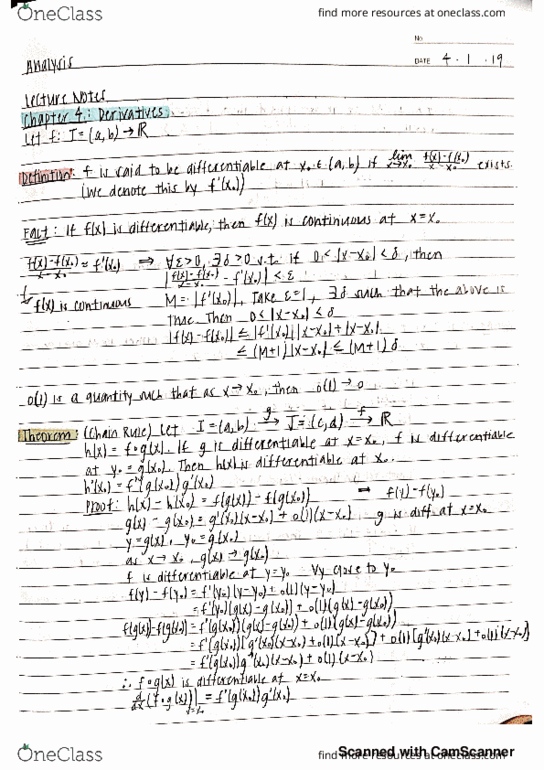 OneClass
find more resources at oneclass.com
No.
DATE 4 · 1 · 19
Analysis
Lecture Notes
Chapter 4: Derivatives
Let f: I=(a,b) → ℝ
Definition: f is said to be differentiable at x₀ ∈ (a,b) if lim x→x₀ (f(x)-f(x₀))/(x-x₀) exists.
(We denote this by f'(x₀))
Fact: If f(x) is differentiable, then f(x) is continuous at x=x₀
(f(x)-f(x₀))/(x-x₀) = f'(x₀) ⇒ ∀ε>0, ∃δ>0 s.t. if 0<|x-x₀|<δ, then
|(f(x)-f(x₀))/(x-x₀) - f'(x₀)| < ε
f(x) is continuous M=|f'(x₀)|, Take ε=1, ∃δ such that the above is
true. Then 0<|x-x₀|<δ
|f(x)-f(x₀)| ≤ |f'(x₀)||x-x₀|+|x-x₀|
≤ (M+1)|x-x₀| ≤ (M+1)δ
o(1) is a quantity such that as x→x₀, then o(1)→0
Theorem: (Chain Rule) Let I=(a,b) →g J=(c,d) →f ℝ
h(x) = f∘g(x). If g is differentiable at x=x₀, f is differentiable
at y₀=g(x₀). Then h(x) is differentiable at x₀.
h'(x₀) = f'(g(x₀))g'(x₀)
Proof: h(x)-h(x₀) = f(g(x))-f(g(x₀)) ⇒ f(y)-f(y₀)
g(x)-g(x₀) = g'(x₀)(x-x₀)+o(1)(x-x₀) g is diff at x=x₀
y=g(x), y₀=g(x₀)
as x→x₀, g(x)→g(x₀)
f is differentiable at y=y₀ ∀y close to y₀
f(y)-f(y₀) = f'(y₀)(y-y₀)+o(1)(y-y₀)
= f'(y₀)(g(x)-g(x₀))+o(1)(g(x)-g(x₀))
f(g(x))-f(g(x₀)) = f'(g(x₀))(g(x)-g(x₀))+o(1)(g(x)-g(x₀))
= f'(g(x₀))[g'(x₀)(x-x₀)+o(1)(x-x₀)]+o(1)[g'(x₀)(x-x₀)+o(1)(x-x₀)]
= f'(g(x₀))g'(x₀)(x-x₀)+o(1)(x-x₀)
∴ f∘g(x) is differentiable at x=x₀
d/dx (f∘g(x))|x=x₀ = f'(g(x₀))g'(x₀)
OneClass
find more resources at oneclass.com
Scanned with CamScanner